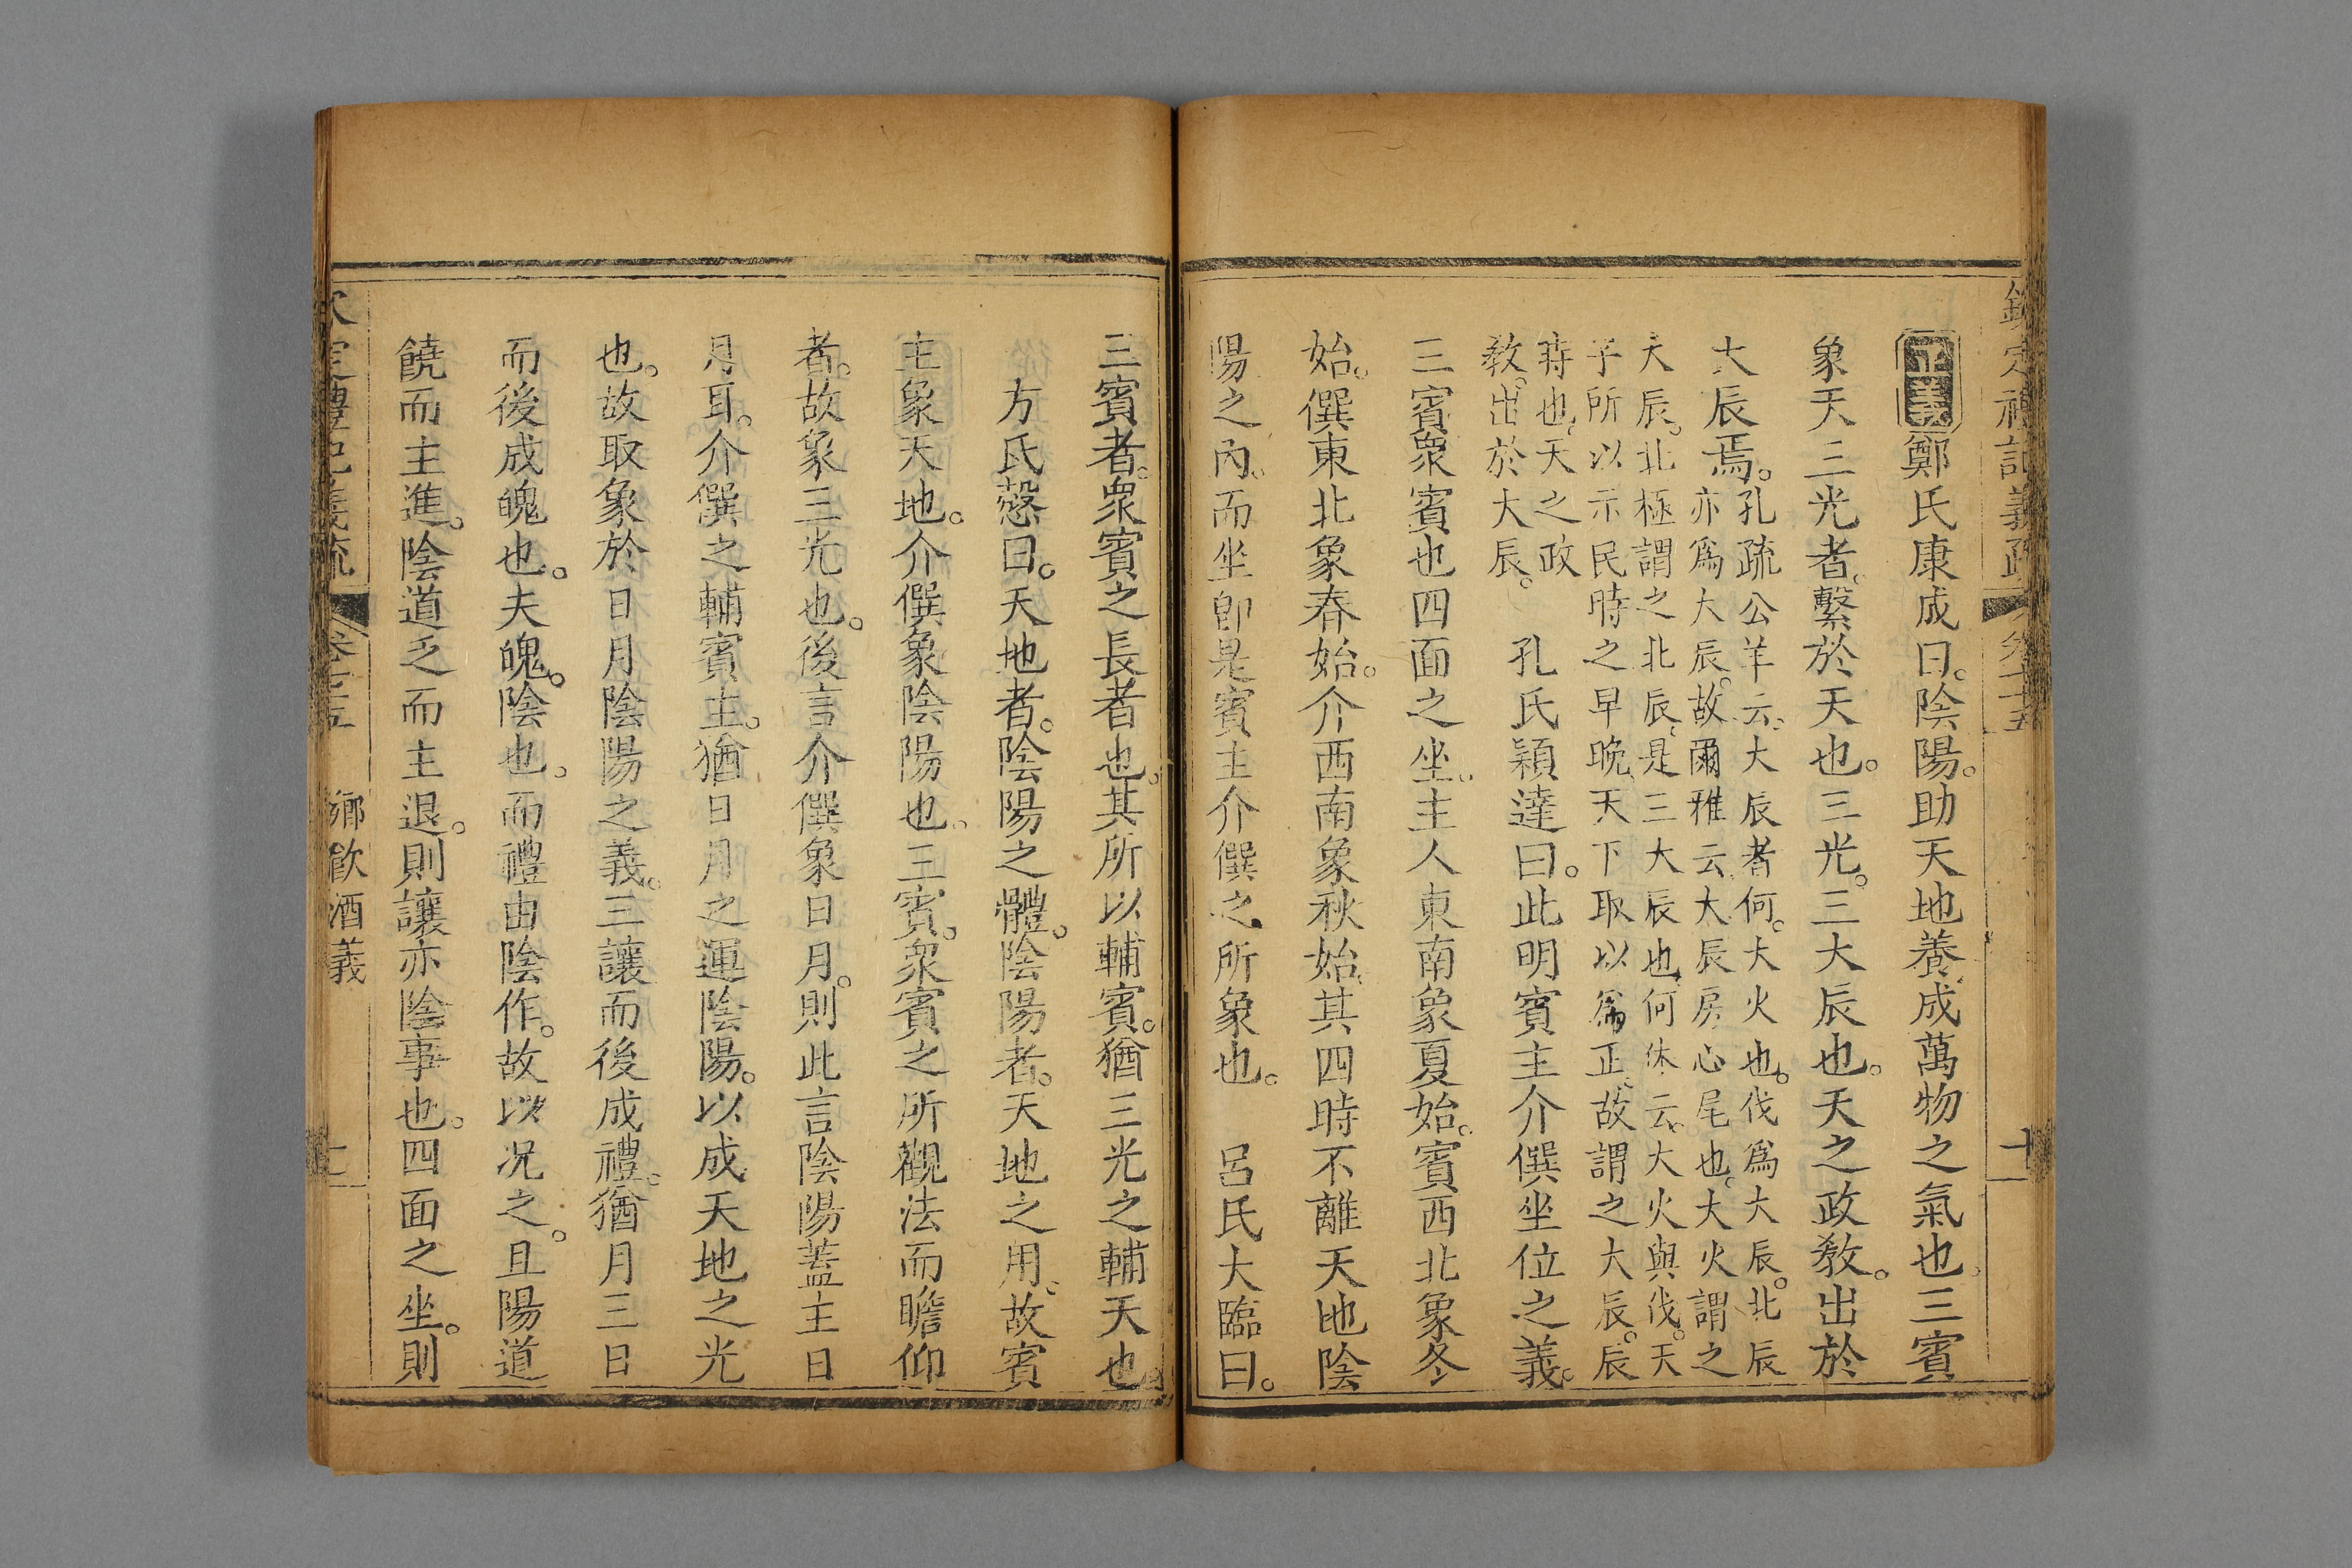 欽定禮記義疏 卷七十五 十一
正義鄭氏康成曰。陰陽。助天地養成萬物之氣也。三賓
象天三光者。繫於天也。三光。三大辰也。天之政教。出於
大辰焉。
孔疏公羊云、大辰者何。大火也。伐爲大辰。北辰
亦爲大辰。故爾雅云、大辰房心尾也、大火謂之
大辰。北極謂之北辰、是三大辰也、何休云。大火與伐。天
子所以示民時之早晚、天下取以爲正、故謂之大辰。辰
時也、天之政
教。出於大辰。
孔氏穎達曰。此明賓主介僎坐位之義。
三賓衆賓也四面之坐。主人東南象夏始。賓西北象冬
始。僎東北象春始。介西南象秋始、其四時不離天地陰
陽之內。而坐卽是賓主介僎之所象也。 呂氏大臨曰。
三賓者。衆賓之長者也。其所以輔賓。猶三光之輔天也。
方氏慤曰。天地者。陰陽之體。陰陽者。天地之用、故賓
主象天地。介僎象陰陽也。三賓。衆賓之所觀法而瞻仰
者。故象三光也。後言介僎象日月。則此言陰陽蓋主日
月耳。介僎之輔賓主。猶日月之運陰陽。以成天地之光
也。故取象於日月陰陽之義。三讓而後成禮。猶月三日
而後成魄也。夫魄。陰也。而禮由陰作。故以况之。且陽道
饒而主進。陰道乏而主退。則讓亦陰事也。四面之坐。則
欽定禮記義疏 卷七十五 鄉飲酒義 十一